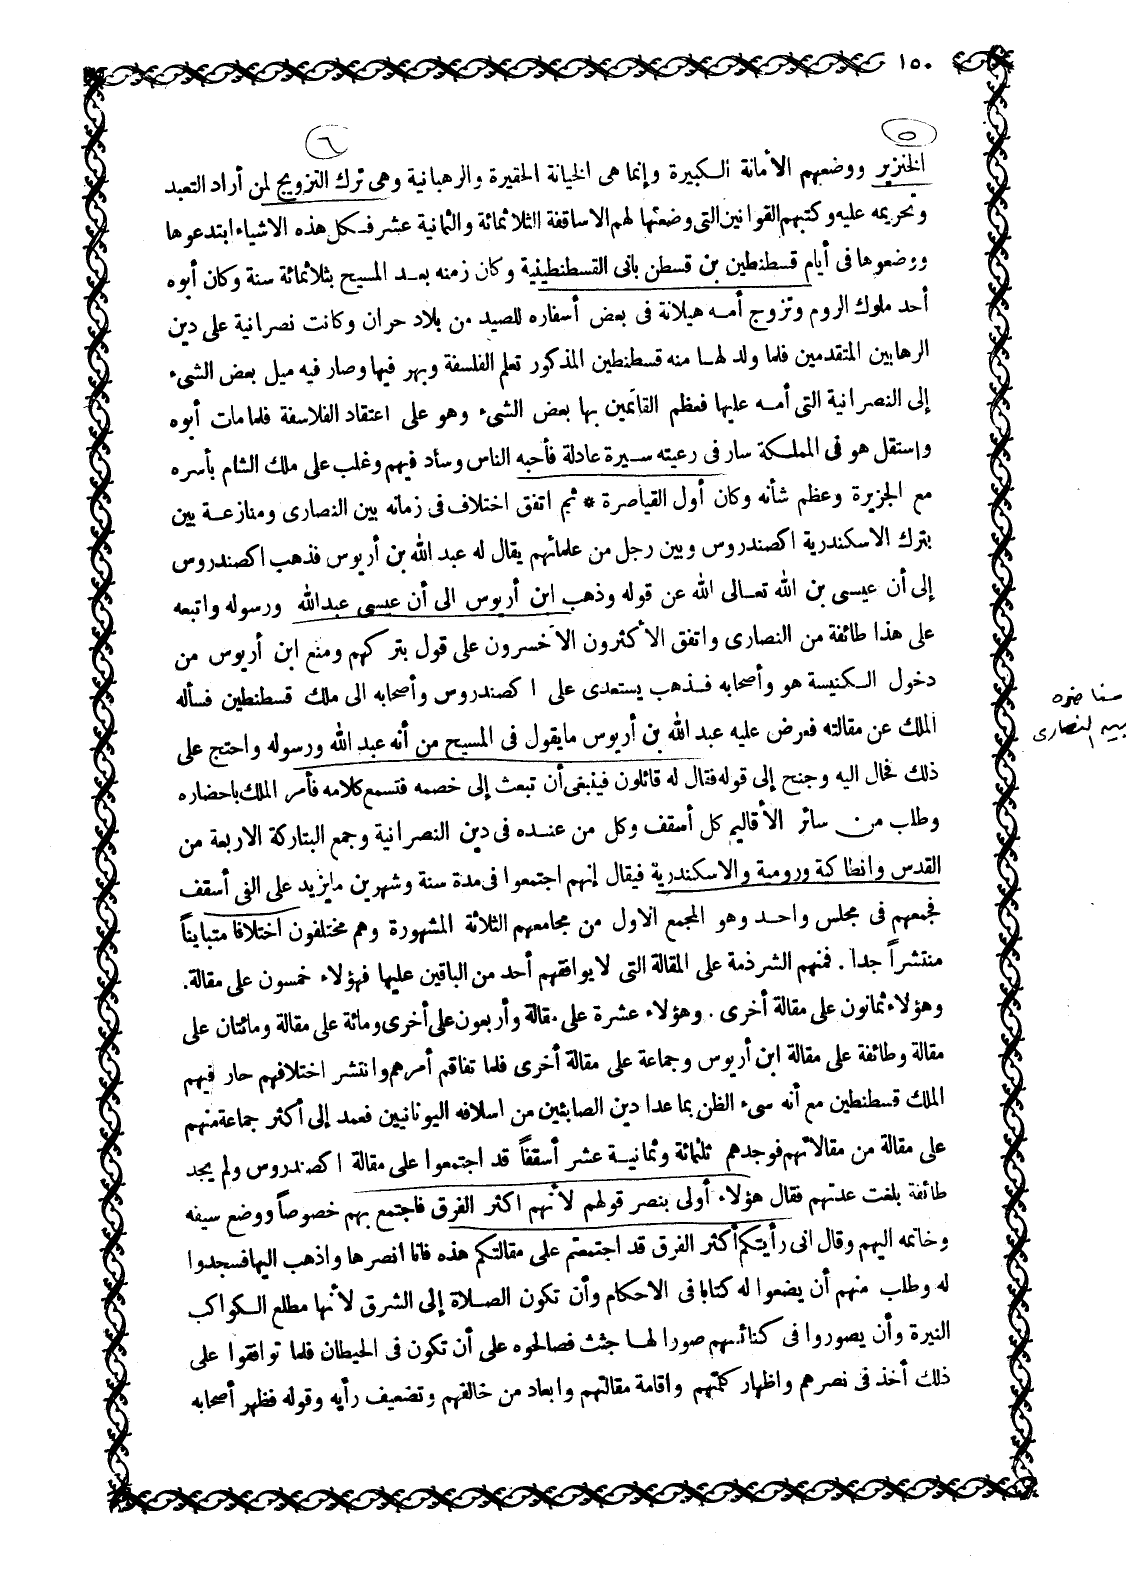 ١٥٠
٥
٦
الخنزير ووضعهم الأمانة الكبيرة وإنما هى الخيانة الحقيرة والرهبانية وهى ترك التزويج لمن أراد التعبد
وتحريمه عليه وكتبهم القوانين التى وضعتها لهم الاساقفة الثلاثمائة والثمانية عشر فكل هذه الاشياء ابتدعوها
ووضعوها فى أيام قسطنطين بن قسطن بانى القسطنطينية وكان زمنه بعد المسيح بثلاثمائة سنة وكان أبوه
أحد ملوك الروم وتزوج أمه هيلانة فى بعض أسفاره للصيد من بلاد حران وكانت نصرانية على دين
الرهابين المتقدمين فلما ولد لها منه قسطنطين المذكور تعلم الفلسفة وبهر فيها وصار فيه ميل بعض الشىء
إلى النصرانية التى أمه عليها فعظم القائمين بها بعض الشىء وهو على اعتقاد الفلاسفة فلما مات أبوه
واستقل هو فى المملكة سار فى رعيته سيرة عادلة فأحبه الناس وساد فيهم وغلب على ملك الشام بأسره
مع الجزيرة وعظم شأنه وكان أول القياصرة * ثم اتفق اختلاف فى زمانه بين النصارى ومنازعة بين
بترك الاسكندرية اكصندروس وبين رجل من علمائهم يقال له عبد الله بن أريوس فذهب اكصندروس
إلى أن عيسى بن الله تعالى الله عن قوله وذهب ابن أريوس الى أن عيسى عبدالله ورسوله واتبعه
على هذا طائفة من النصارى واتفق الأكثرون الأخسرون على قول بتركهم ومنع ابن أريوس من
دخول الكنيسة هو وأصحابه فذهب يستعدى على اكصندروس وأصحابه الى ملك قسطنطين فسأله
الملك عن مقالته فعرض عليه عبد الله بن أريوس مايقول فى المسيح من أنه عبد الله ورسوله واحتج على
ذلك فحال اليه وجنح إلى قوله فقال له قائلون فينبغى أن تبعث إلى خصمه فتسمع كلامه فأمر الملك باحضاره
وطلب من سائر الأقاليم كل أسقف وكل من عنده فى دين النصرانية وجمع البتاركة الاربعة من
القدس وانطاكية ورومية والاسكندرية فيقال إنهم اجتمعوا فى مدة سنة وشهرين مايزيد على الفى أسقف
فجمعهم فى مجلس واحد وهو المجمع الاول من مجامعهم الثلاثة المشهورة وهم مختلفون اختلافا متباينا
منتشراً جدا . فمنهم الشرذمة على المقالة التى لايوافقهم أحد من الباقين عليها فهؤلاء خمسون على مقالة.
وهؤلاء ثمانون على مقالة أخرى . وهؤلاء عشرة على مقالة وأربعون على أخرى ومائة على مقالة ومائتان على
مقالة وطائفة على مقالة ابن أريوس وجماعة على مقالة أخرى فلما تفاقم أمرهم وانتشر اختلافهم حار فيهم
الملك قسطنطين مع أنه سىء الظن بما عدا دين الصابئين من اسلافه اليونانيين فعمد إلى أكثر جماعة منهم
على مقالة من مقالاتهم فوجدهم ثلثمائة وثمانية عشر أسقفاً قد اجتمعوا على مقالة اكصندروس ولم يجد
طائفة بلغت عدتهم فقال هؤلاء أولى بنصر قولهم لأنهم اكثر الفرق فاجتمع بهم خصوصاً ووضع سيفه
وخاتمه اليهم وقال انى رأيتكم أكثر الفرق قد اجتمعتم على مقالتكم هذه فانا انصرها واذهب اليها فسجدوا
له وطلب منهم أن يضعوا له كتابا فى الاحكام وأن تكون الصلاة إلى الشرق لأنها مطلع الكواكب
النيرة وأن يصوروا فى كنائسهم صورا لها جثث فصالحوه على أن تكون فى الحيطان فلما توافقوا على
ذلك أخذ فى نصرهم واظهار كلمتهم واقامة مقالتهم وابعاد من خالفهم وتضعيف رأيه وقوله فظهر أصحابه
بين النصارى